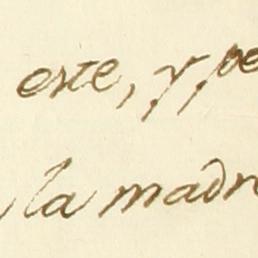 este, y pe
la madre